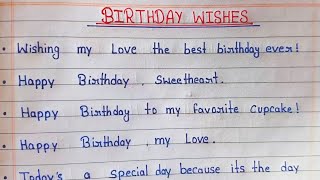 BIRTHDAY WISHES
• Wishing my Love the best birthday ever!
• Happy Birthday, Sweetheart.
• Happy Birthday to my favorite Cupcake!
• Happy Birthday, my Love.
• Today's a special day because its the day